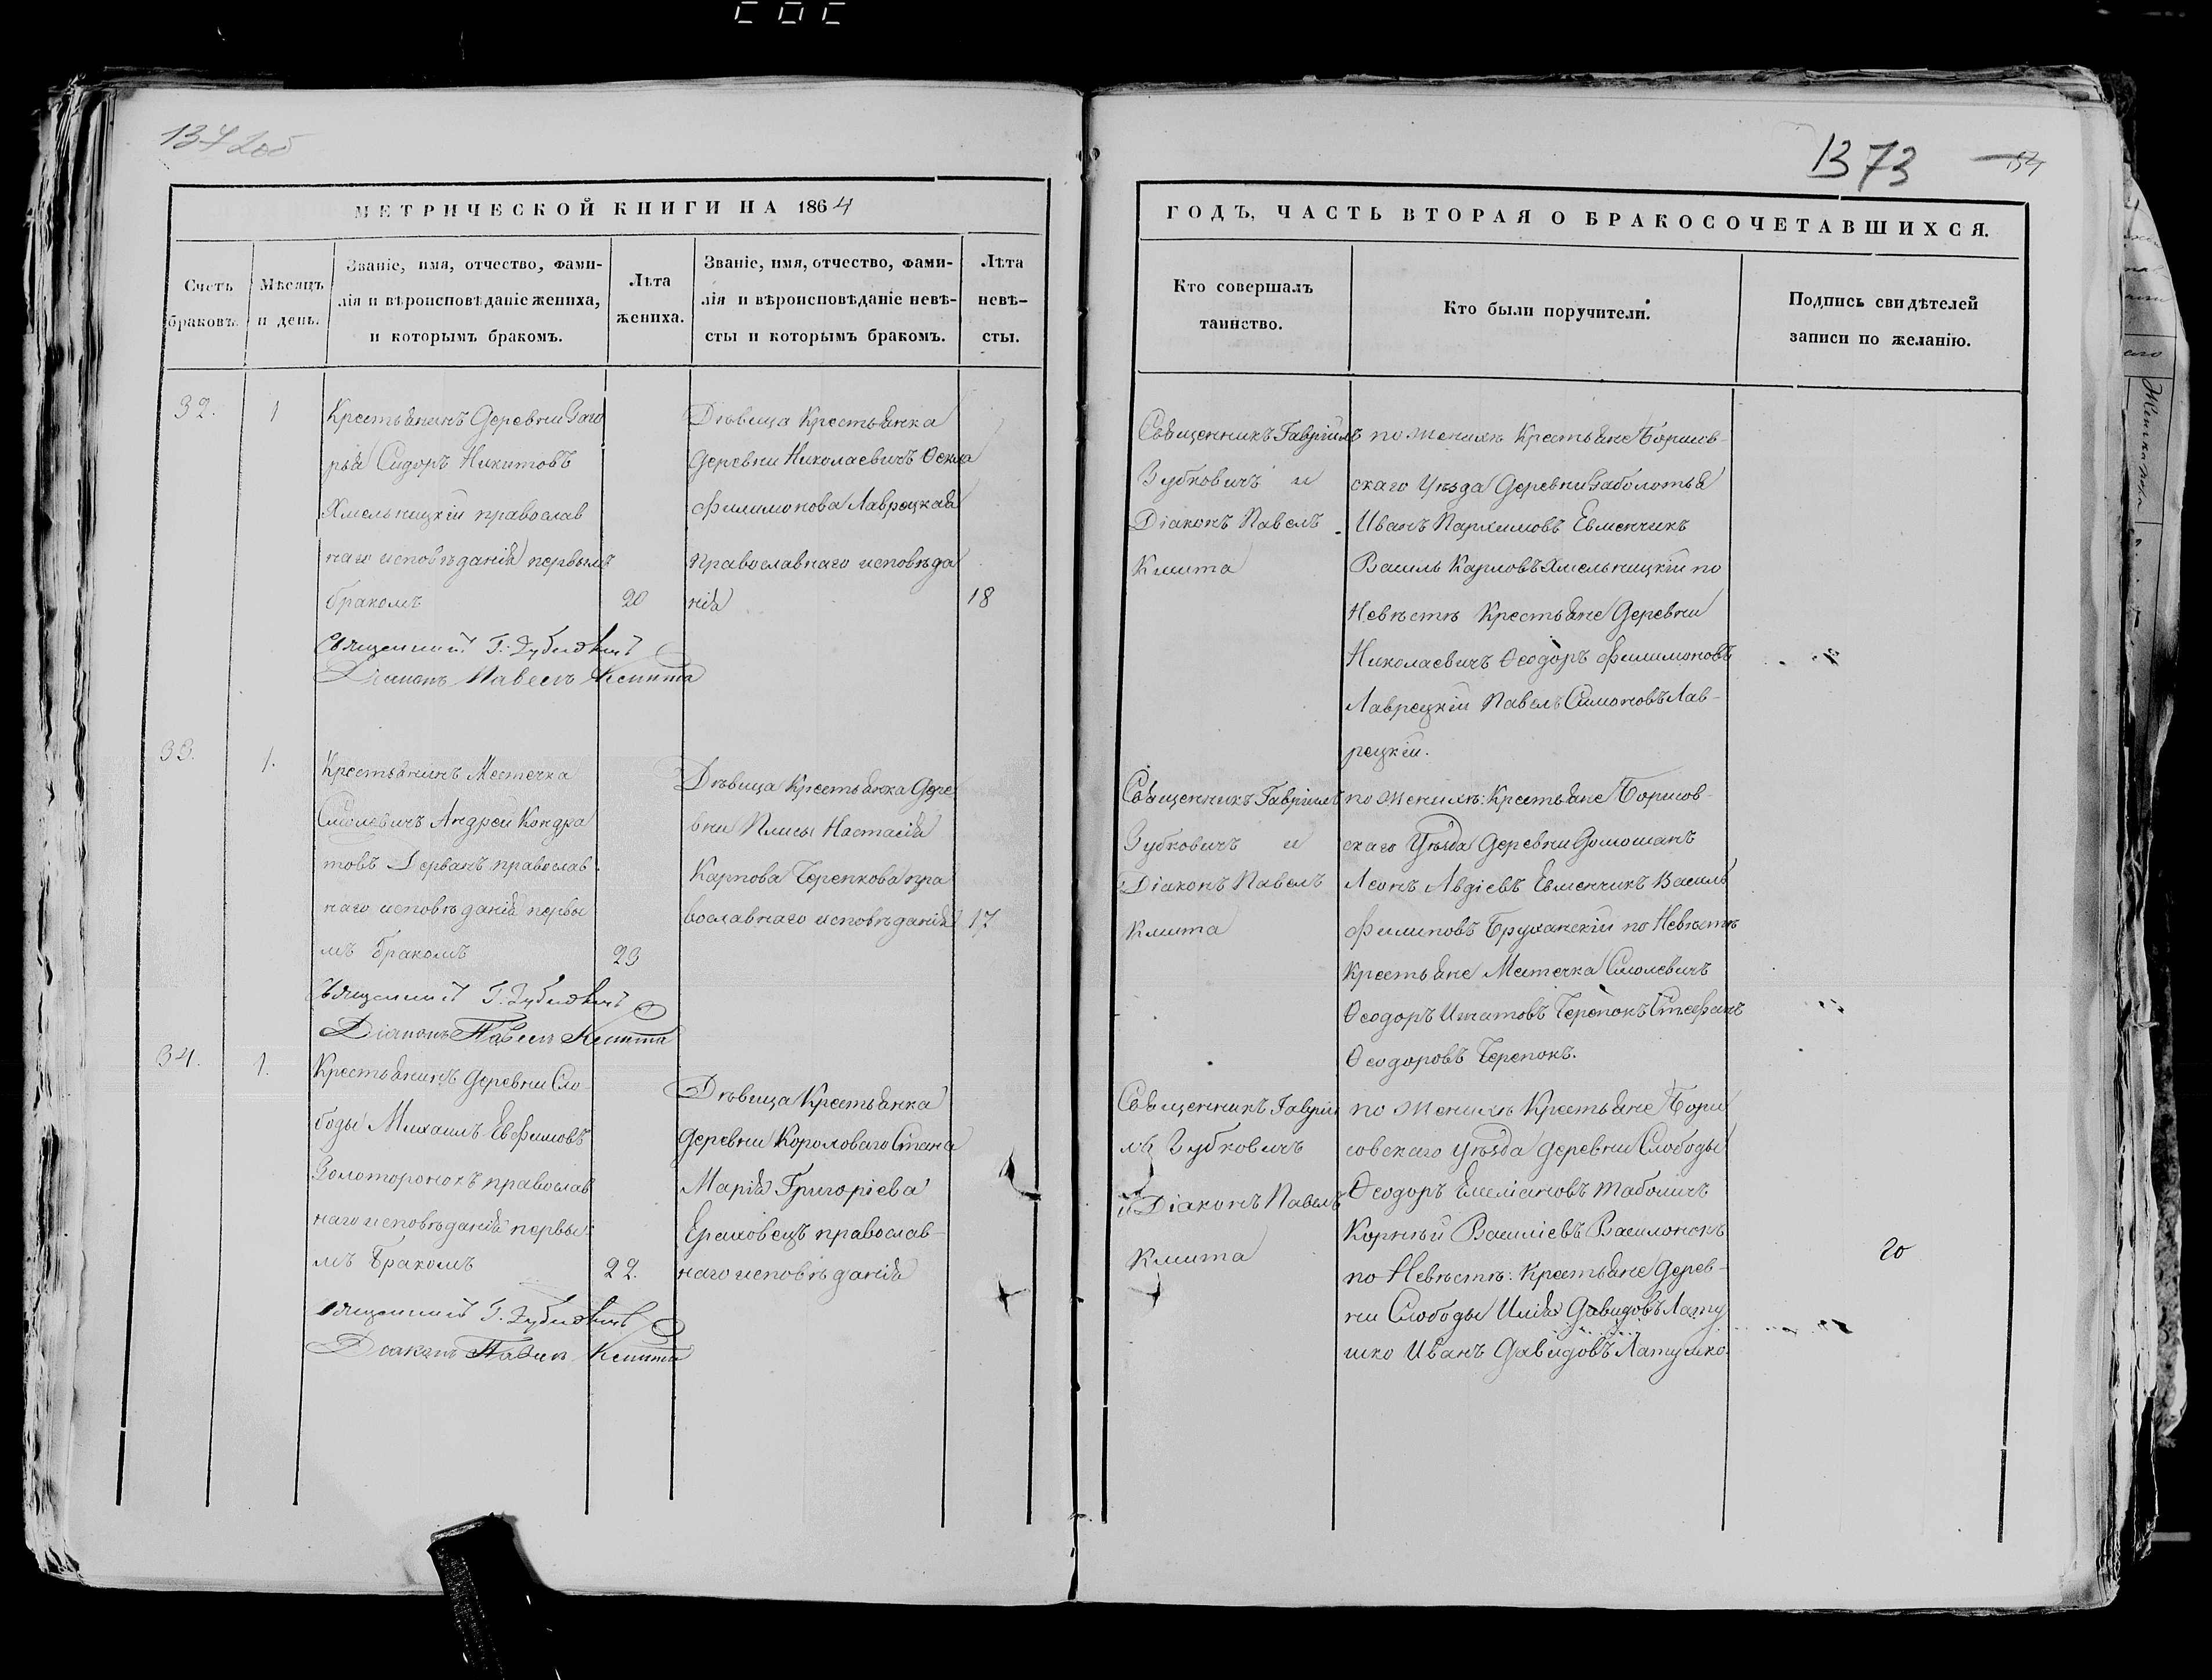 137 об
1373
МЕТРИЧЕСКОЙ КНИГИ НА 1864
ГОДЪ, ЧАСТЬ ВТОРАЯ О БРАКОСОЧЕТАВШИХСЯ.
Счетъ
браковъ.
Мѣсяцъ
и день.
Званіе, имя, отчество, фами-
лія и вѣроисповѣданіе жениха,
и которымъ бракомъ.
Лѣта
жениха.
Званіе, имя, отчество, фами-
лія и вѣроисповѣданіе невѣ-
сты и которымъ бракомъ.
Лѣта
невѣ-
сты.
Кто совершалъ
таинство.
Кто были поручители.
Подпись свидѣтелей
записи по желанію.
32.
1
Крестьянинъ Деревни Заго
рья Сидоръ Никитовъ
Хмельницкій православ
наго исповѣданія первымъ
бракомъ
20
Священникъ Г. Зубковичъ
Діаконъ Павелъ Кмита
Дѣвица Крестьянка
Деревни Николаевичъ Ѳекла
Филимонова Лаврецкая
Православнаго исповѣда
нія
18
Священникъ Гавріилъ
Зубковичъ и
Діаконъ Павелъ
Кмита
по Женихѣ Крестьяне Борисов-
скаго Уѣзда Деревни Заболотья
Иванъ Пархимовъ Евменчикъ
Василь Карповъ Хмельницкій по
Невѣстѣ Крестьяне Деревни
Николаевичъ Ѳеодоръ Филимоновъ
Лаврецкій Павелъ Симоновъ Лав-
рецкій.
33.
1.
Крестьянинъ Местечка
Смолевичъ Андрей Кондра
товъ Дерванъ православ
наго исповѣданія первы
мъ бракомъ
23
Священникъ Г. Зубковичъ
Діаконъ Павелъ Кмита
Дѣвица Крестьянка Дере
вни Плисы Настасія
Карпова Черепкова пра
вославнаго исповѣданія
17
Священникъ Гавріилъ
Зубковичъ и
Діаконъ Павелъ
Кмита
по Женихѣ: Крестьяне Борисов-
скаго Уѣзда Деревни Домошанъ
Леонъ Авдіевъ Евменчикъ Василь
Филиповъ Бруханскій по Невѣстѣ
Крестьяне Местечка Смолевичъ
Ѳеодоръ Игнатовъ Черепокъ Стефанъ
Ѳеодоровъ Черепокъ.
34.
1.
Крестьянинъ Деревни Сло-
боды Михаилъ Евфимовъ
Золоторонокъ православ
наго исповѣданія первы
мъ Бракомъ
22.
Священникъ Г. Зубковичъ
Діаконъ Павелъ Кмита
Дѣвица Крестьянка
Деревни Короловаго Стана
Марія Григоріева
православ-
наго исповѣданія
Священникъ Гавріи
лъ Зубковичъ
и Діаконъ Павелъ
Кмита
по Женихѣ Крестьяне Бори
совскаго Уѣзда Деревни Слободы
Ѳеодоръ Емеліановъ Жабоничъ
Корнѣй Василіевъ Василонокъ
по Невѣстѣ: Крестьяне Дерев-
ни Слободы Илія Давидовъ Лату
шко Иванъ Давидовъ Латушко.
20